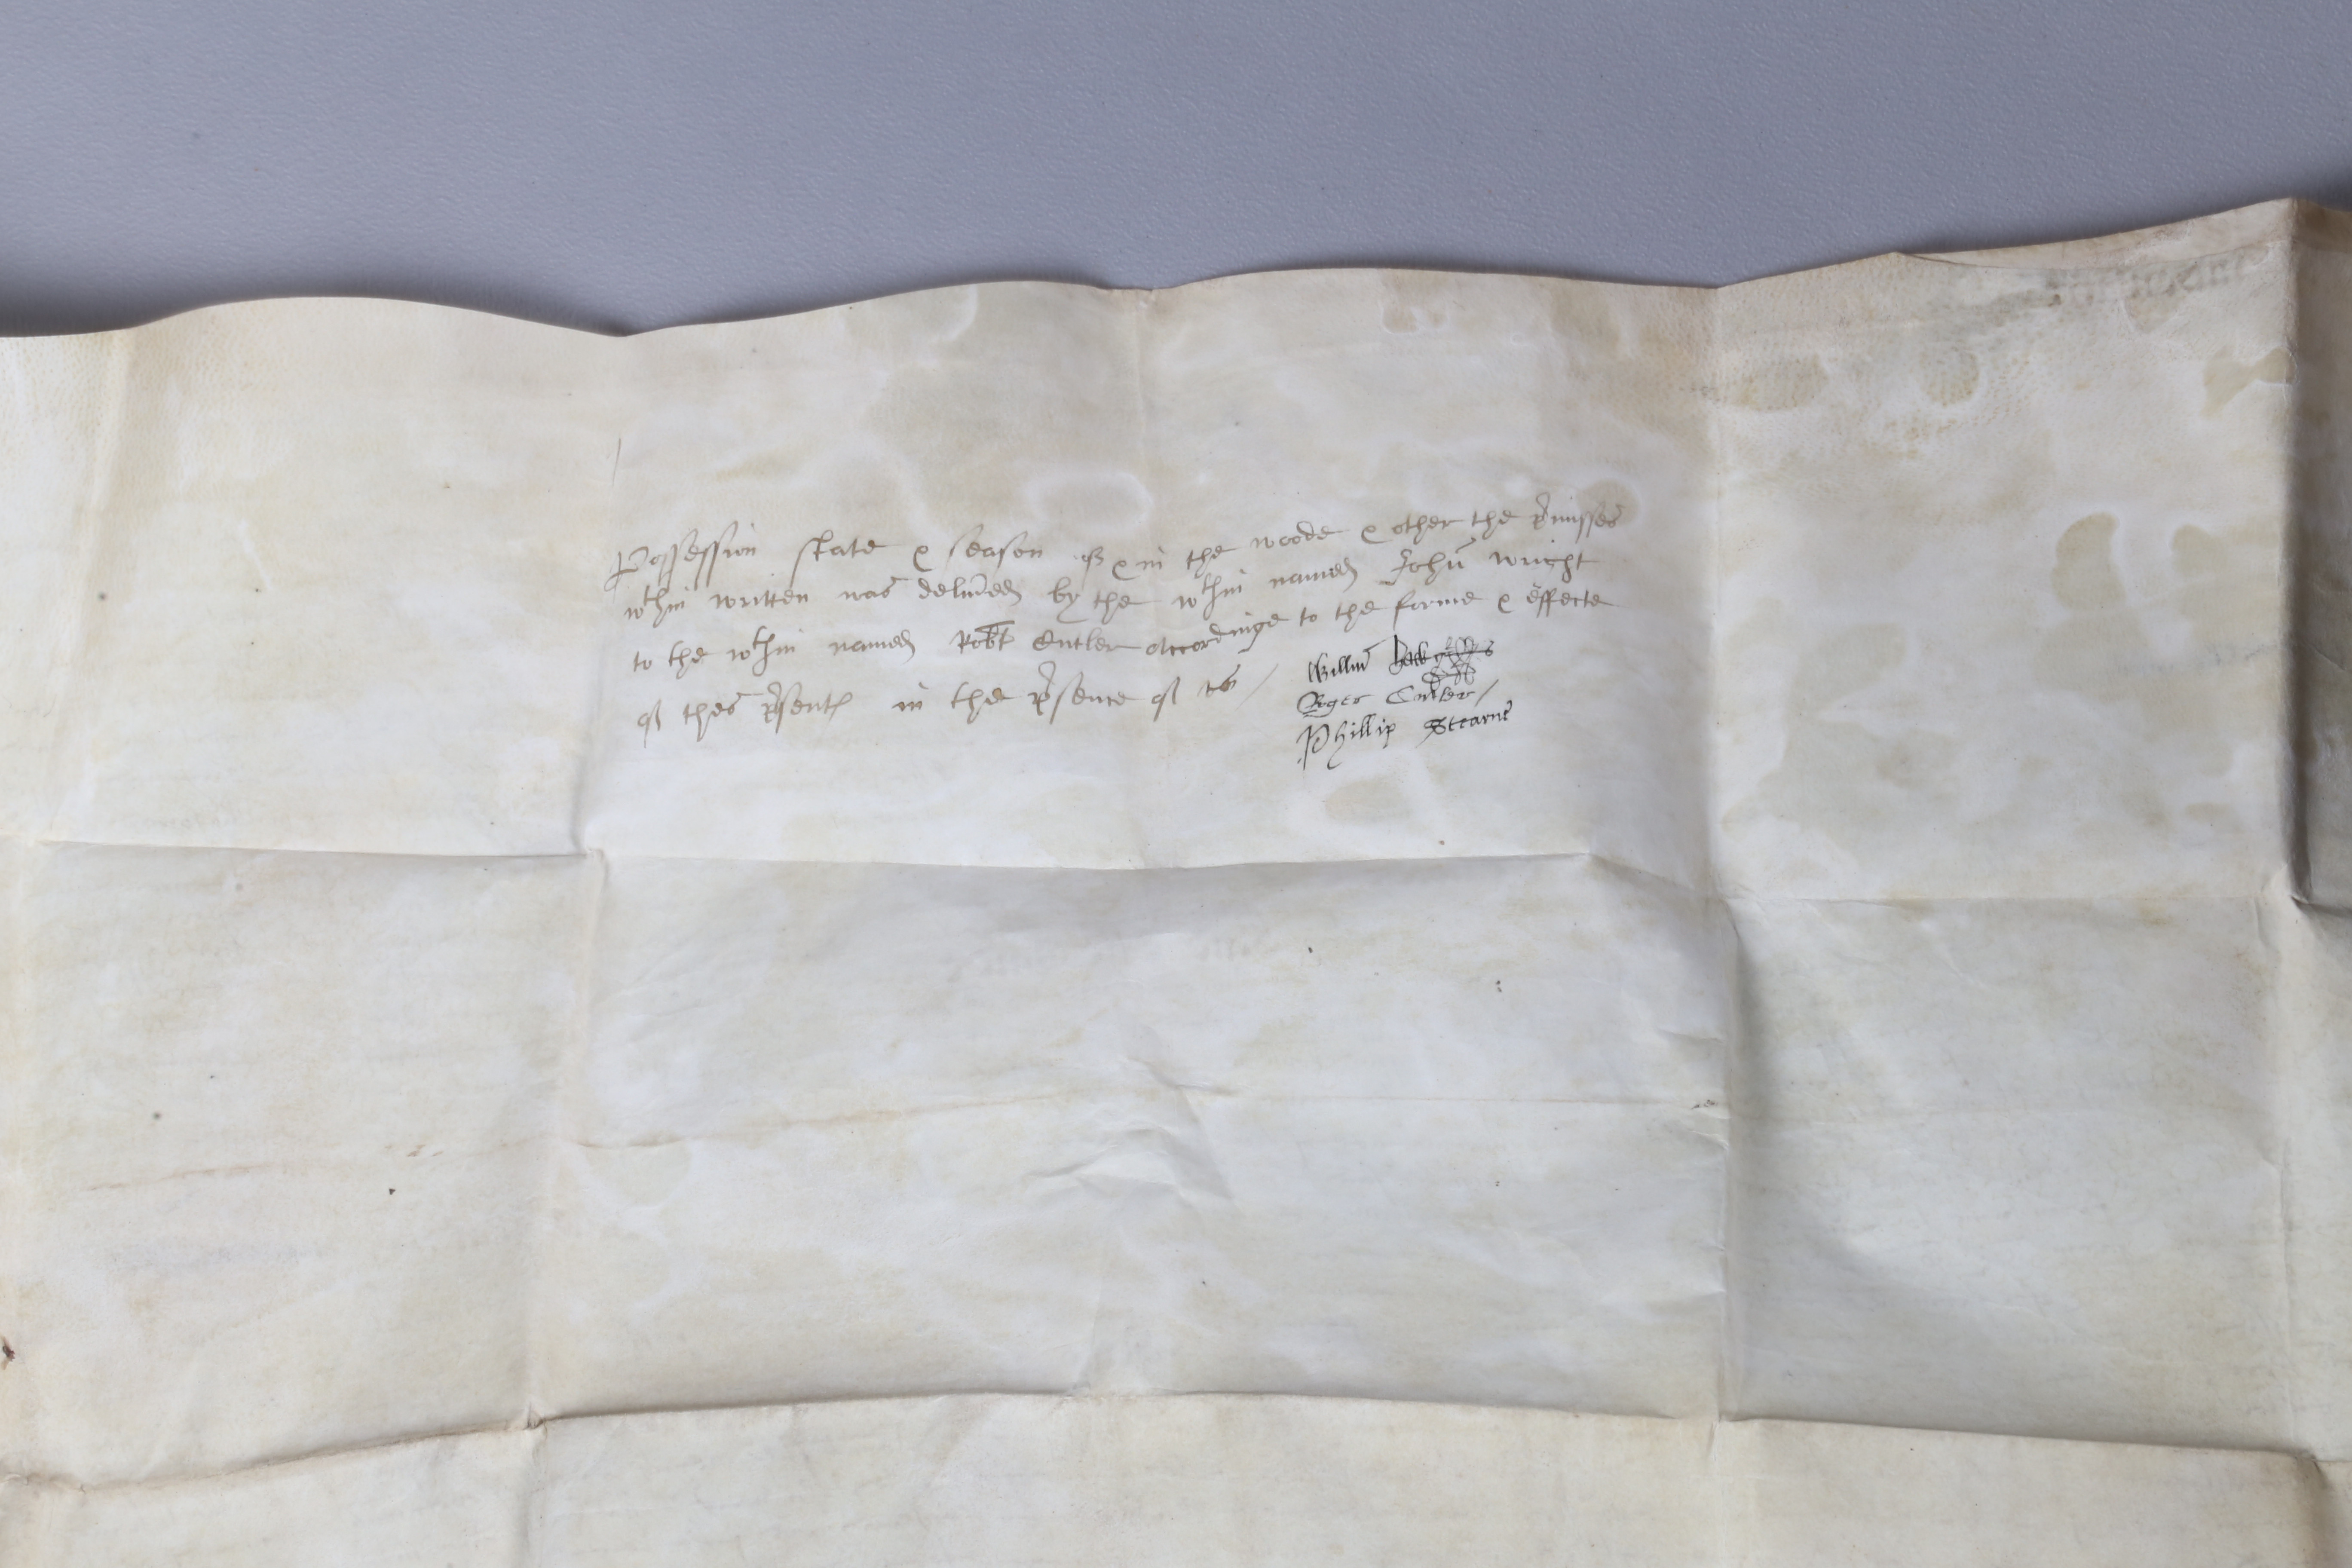 Possession state & season of & in the woode & other the p̄misses
wthin written was delīued by the wthin named John̄ wright
to the wthin named Rob̄t Cutler accordinge to the forme & effecte
of thes p̄sent in the p̄sence of
Willm̄
Roger Cutler
Phillip Stearne